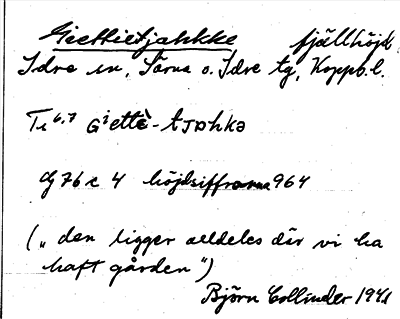 Giettietjahkke fjällhöjd
Idre sn, Särna o. Idre tg, Koppb. l.
Ti 6,7 Giettè-tjahkə
dj 76 c 4 höjdsiffrorna 964
("den ligger alldeles där vi ha
haft gården")
Björn Collinder 1941